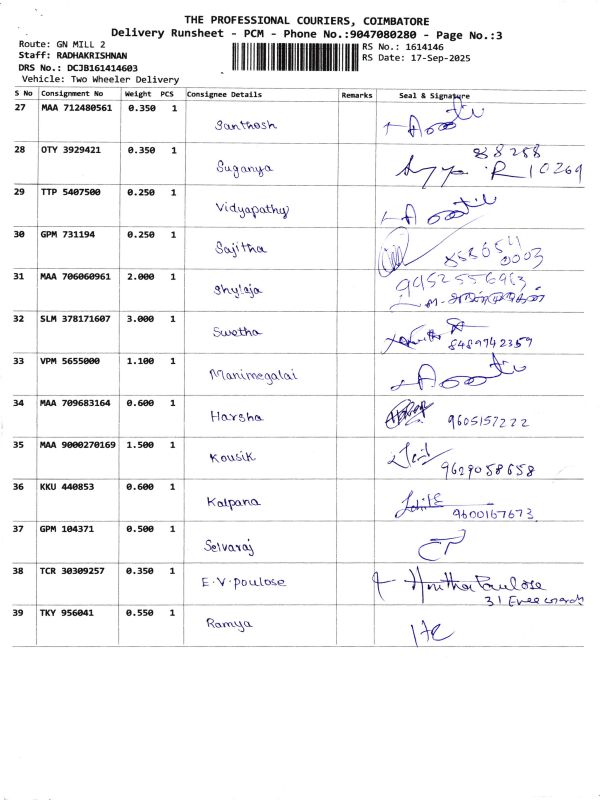 THE PROFESSIONAL COURIERS, COIMBATORE
Delivery Runsheet - PCM - Phone No.:9047080280 - Page No.:3
Route: GN MILL 2
RS No.: 1614146
Staff: RADHAKRISHNAN
RS Date: 17-Sep-2025
DRS No.: DCJB161414603
Vehicle: Two Wheeler Delivery
S No Consignment No Weight PCS Consignee Details Remarks Seal & Signature
27 MAA 712480561 0.350 1 Santhosh
28 OTY 3929421 0.350 1 Suganya
29 TTP 5407500 0.250 1 Vidyapathy
30 GPM 731194 0.250 1 Sajitha
31 MAA 706060961 2.000 1 Shylaja
32 SLM 378171607 3.000 1 Swetha 8489742359
33 VPM 5655000 1.100 1 Manimegalai
34 MAA 709683164 0.600 1 Harsha 9605157222
35 MAA 9000270169 1.500 1 Kousik 9629058658
36 KKU 440853 0.600 1 Kalpana 9600167673
37 GPM 104371 0.500 1 Selvaraj
38 TCR 30309257 0.350 1 E.V.poulose
39 TKY 956041 0.550 1 Ramya